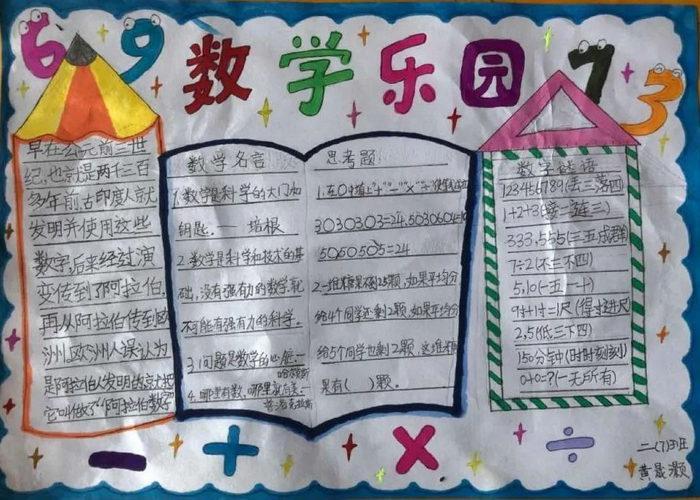 69 数学乐园 73
早在公元前三世
纪,也就是两千三百
多年前古印度人就
发明并使用这些
数字,后来经过演
变传到了阿拉伯,
再从阿拉伯传到欧
洲,欧洲人误认为
是阿拉伯人发明的就把
它叫做了“阿拉伯数字”
数学名言
1.数学是科学的大门和
钥匙.—— 培根
2.数学是科学和技术的基
础,没有强有力的数学,就
不可能有强有力的科学。
3.问题是数学的心脏.—
哈莫斯
4.哪里有数,哪里就有美.—
普洛克拉斯
思考题
1.在○中填上“+”“-”“×”“÷”
3○3○3○3=24,
5○5○5○5=24
2.一堆糖果不到25颗,如果平均分
给4个同学还剩2颗,如果平均分
给5个同学也剩2颗,这堆糖
果有( )颗。
数字谜语
1+2+3(接二连三)
333,555(三五成群)
7÷2(不三不四)
5,10(一五一十)
9寸+1寸=1尺(得寸进尺)
2,5(低三下四)
15分钟(时时刻刻)
0+0=?(一无所有)
- + × ÷
二(7)班
黄晟灏